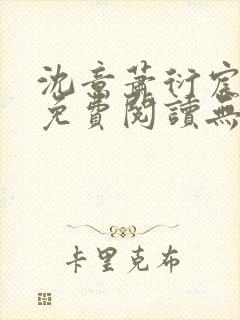 沈意蕭衍宸
免費閱讀無
卡里克布